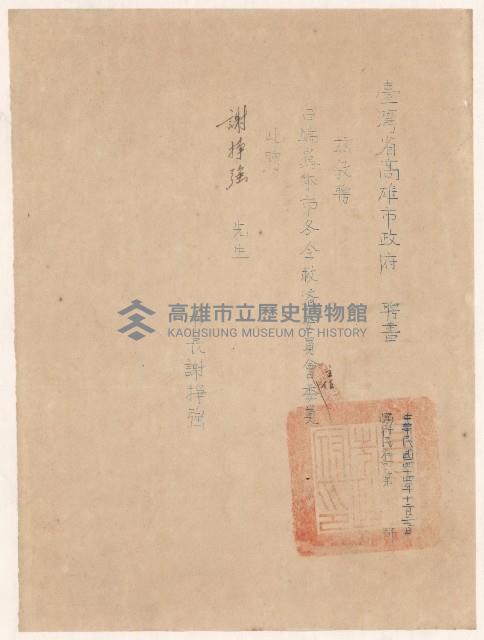 臺灣省高雄市政府 聘書
茲敦聘
台端為本市冬令救濟委員會委員
主任
此聘
謝掙強 先生
市長謝掙強
中華民國四十四年十二月
字第 號
高雄市立歷史博物館
KAOHSIUNG MUSEUM OF HISTORY